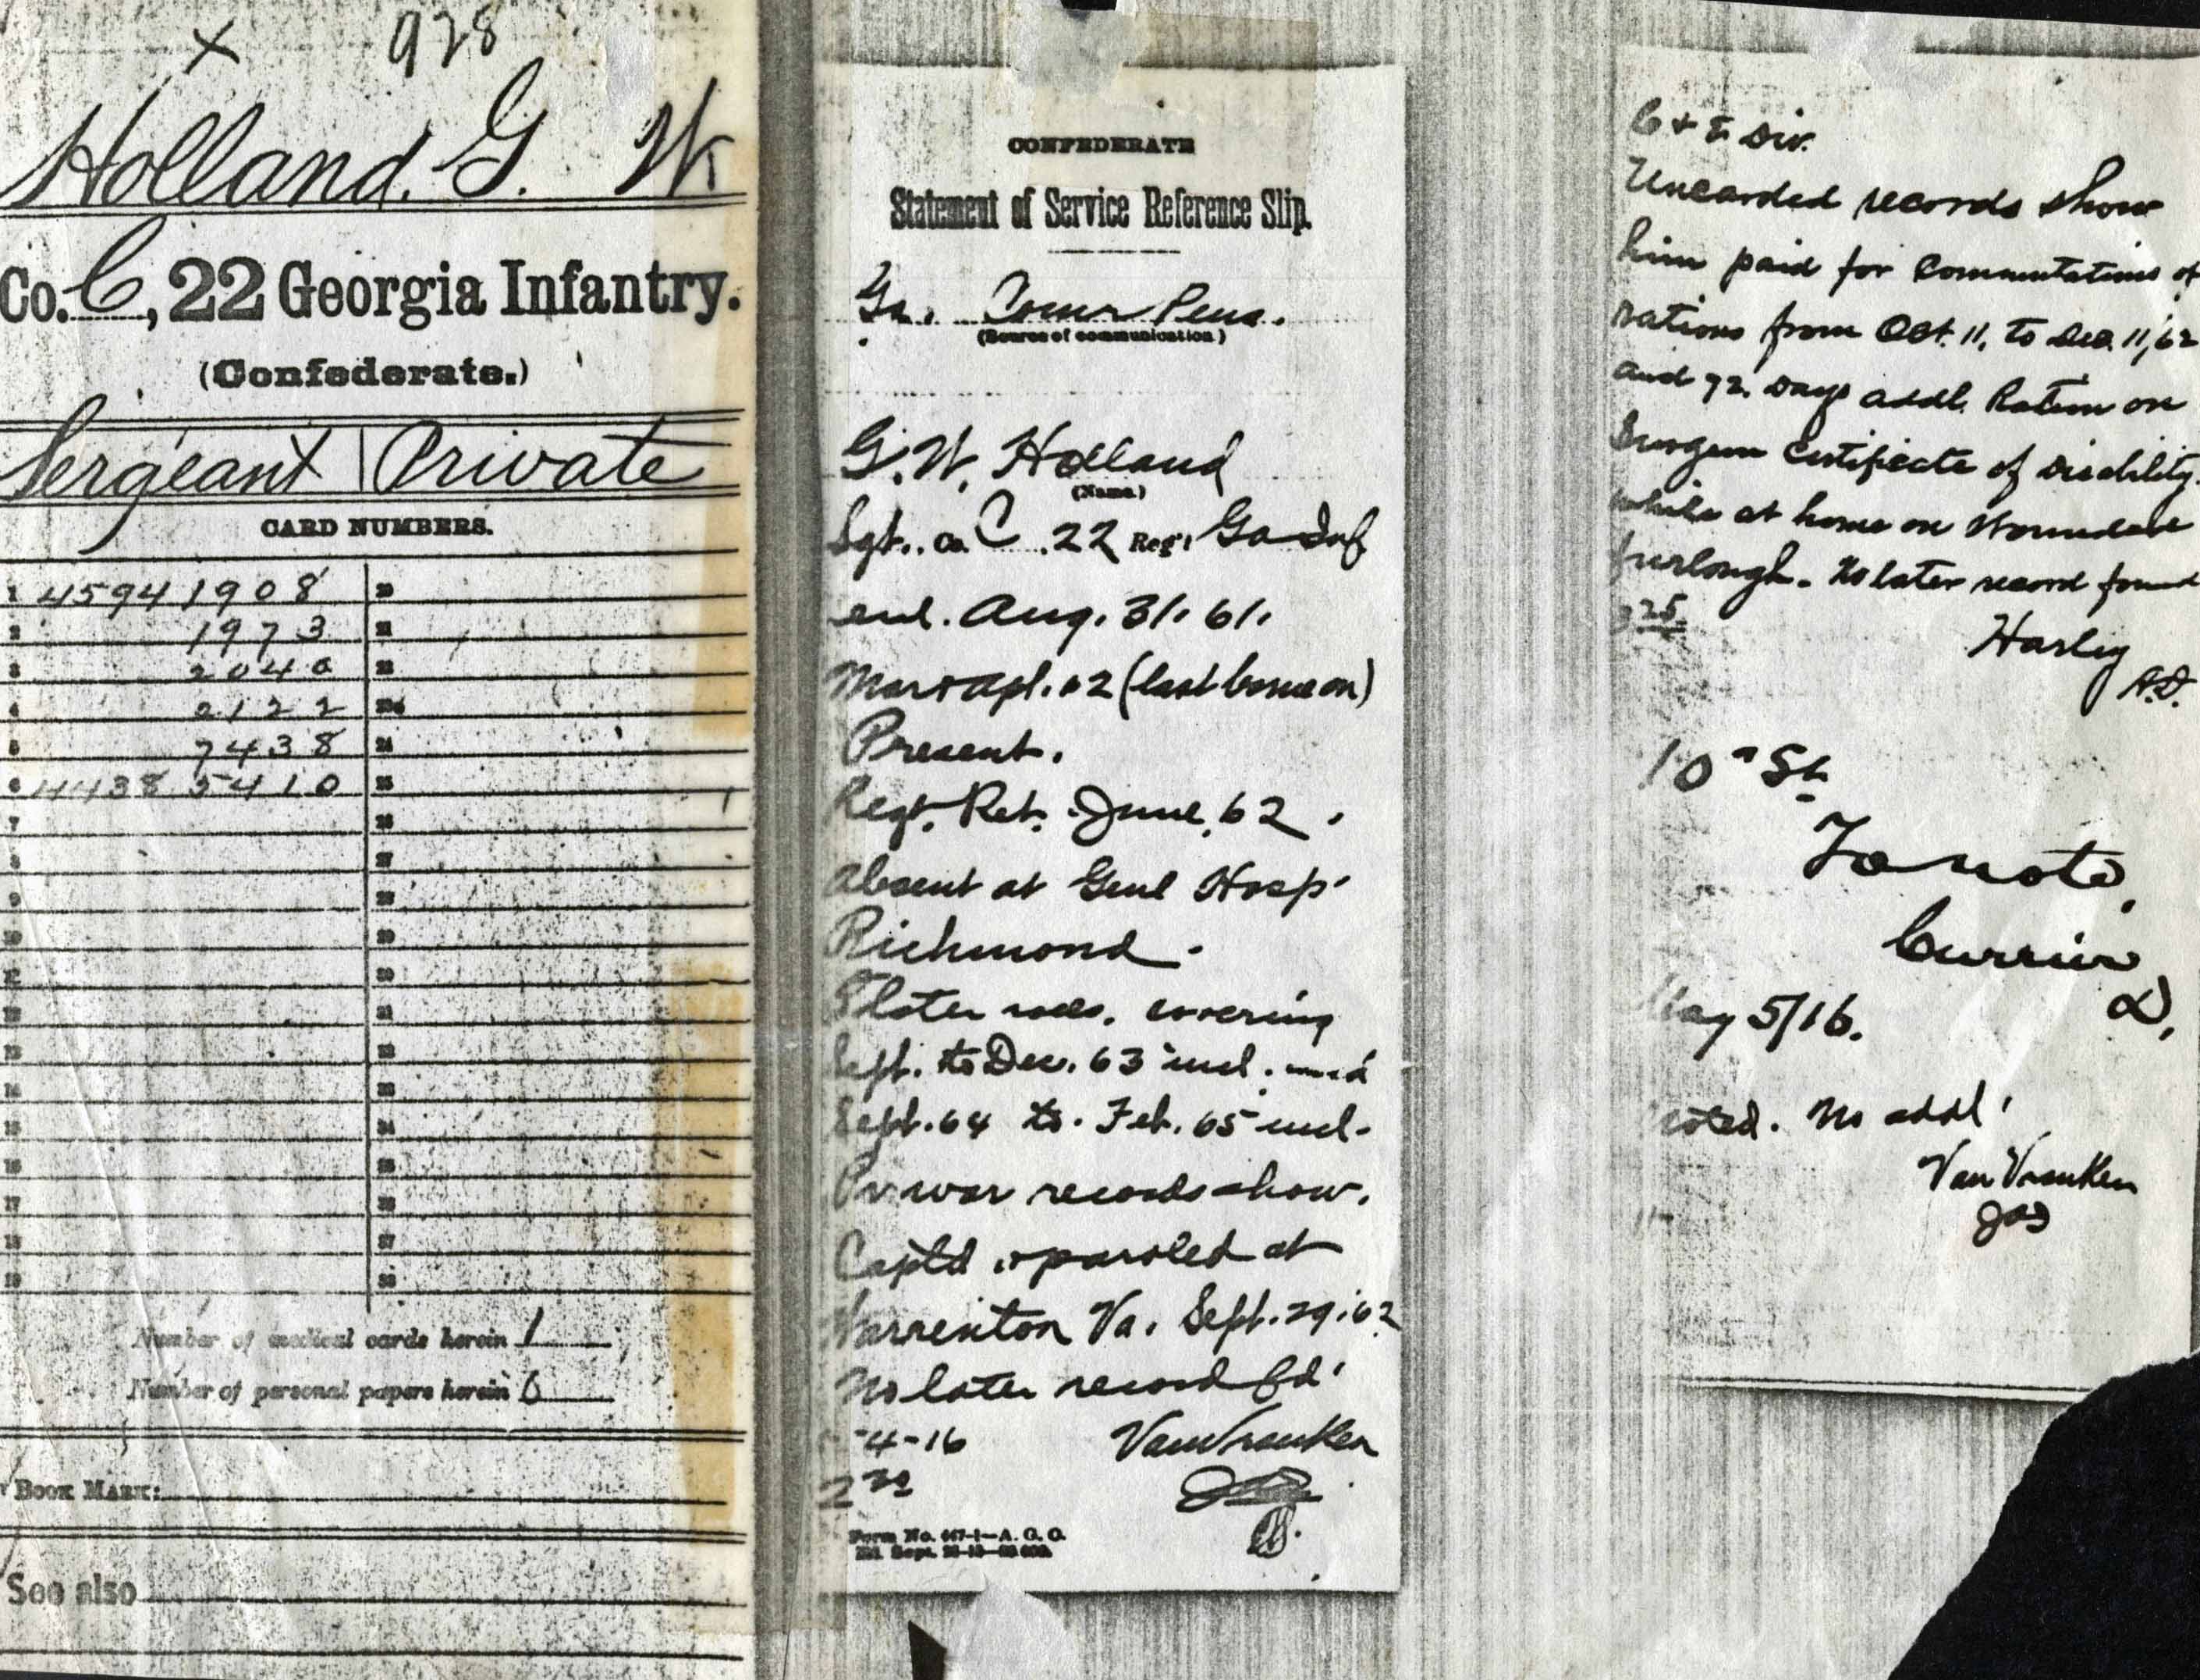 x 928
Holland. G. W
Co. C, 22 Georgia Infantry.
(Confederate.)
Sergeant | Private
CARD NUMBERS.
1 45941908 20
2 1973 21
3 2040 22
4 2122 23
5 7438 24
6 4438 5410 25
7 26
8 27
9 28
10 29
11 30
12 31
13 32
14 33
15 34
16 35
17 36
18 37
19 38
Number of medical cards herein 1
Number of personal papers herein 6
BOOK MARK:
See also
CONFEDERATE
Statement of Service Reference Slip.
Ga. Comr Pens.
(Source of communication)
G. W. Holland
(Name)
Sgt. Co. C 22 Reg't Ga Inf
enl. Aug. 31. 61.
Mar & Apl. 62 (last borne on)
Present.
Regt. Ret. June, 62.
absent at Genl Hosp.
Richmond.
later covering
Sept. to Dec. 63 incl. and
Sept. 64 to Feb. 65 incl.
Pr war records show.
Captd & paroled at
Warrenton Va. Sept. 29. 62
No later record fd.
-4-16 VanVranken
2 30
Form No. 447-1—A. G. O.
Ed. Sept.
C & E Div.
Uncarded records show
him paid for Commutations of
rations from Oct. 11, to Dec. 11, 62
and 72 Days addl. Ration on
Surgeon Certificate of Disability.
while at home on Wounded
furlough. No later record found
3 25
Harley
10" St.
To note,
Currier
May 5/16. D,
noted. No addl'
Van Vranken